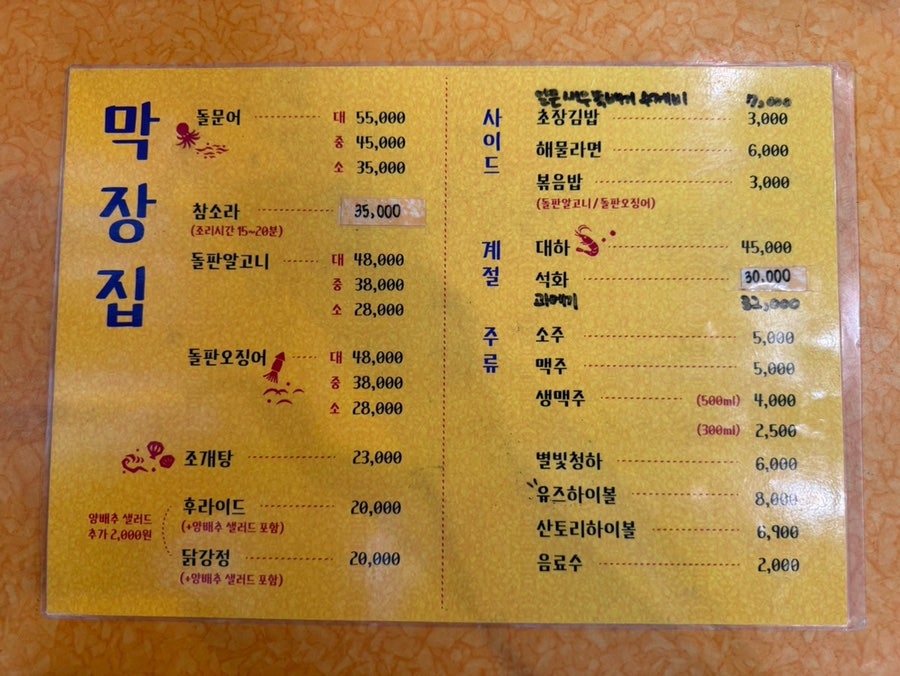 막장집
돌문어 대 55,000
중 45,000
소 35,000
참소라 35,000
(조리시간 15~20분)
돌판알고니 대 48,000
중 38,000
소 28,000
돌판오징어 대 48,000
중 38,000
소 28,000
조개탕 23,000
양배추 샐러드
추가 2,000원
후라이드 20,000
(+양배추 샐러드 포함)
닭강정 20,000
(+양배추 샐러드 포함)
사이드
7,000
초장김밥 3,000
해물라면 6,000
볶음밥 3,000
(돌판알고니/돌판오징어)
계절
대하 45,000
석화 30.000
과메기 32,000
주류
소주 5,000
맥주 5,000
생맥주 (500ml) 4,000
(300ml) 2,500
별빛청하 6,000
유즈하이볼 8,000
산토리하이볼 6,900
음료수 2,000